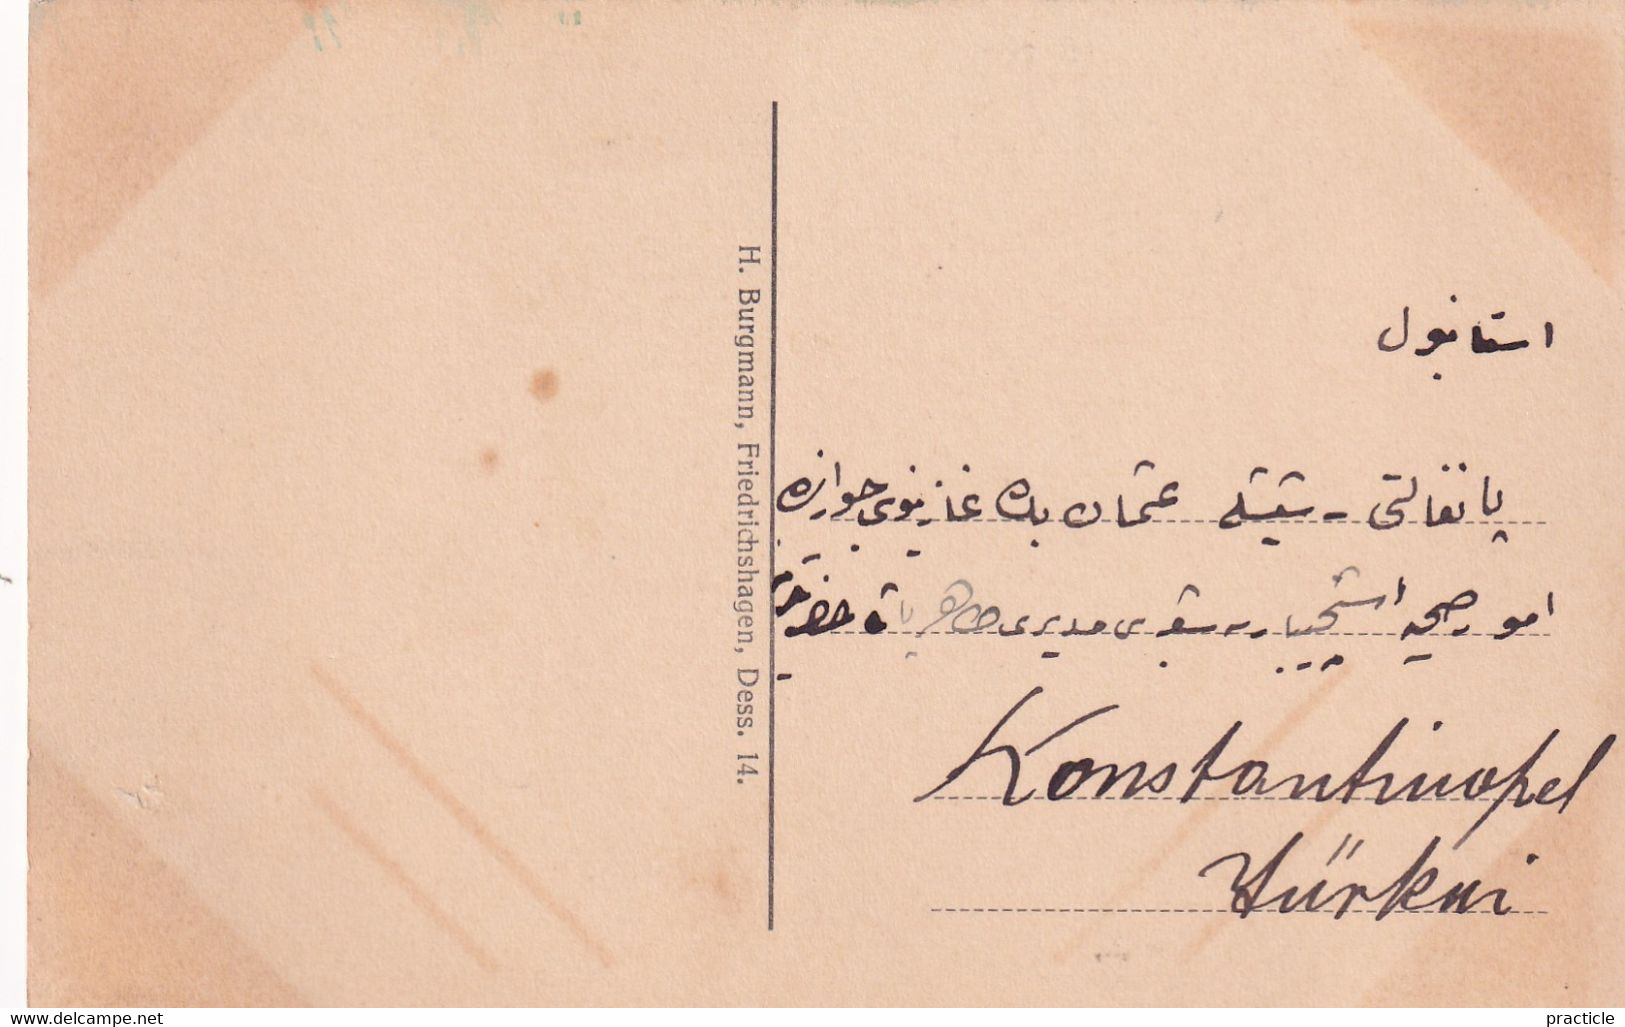 H. Burgmann, Friedrichshagen, Dess. 14.
استانبول
پانغالتی - شیشلی عثمان بك غازینوسی جوارنده
امور صحیه استخبارات مدیری طاهر بك
Konstantinopel
Türkei
www.delcampe.net
practicle